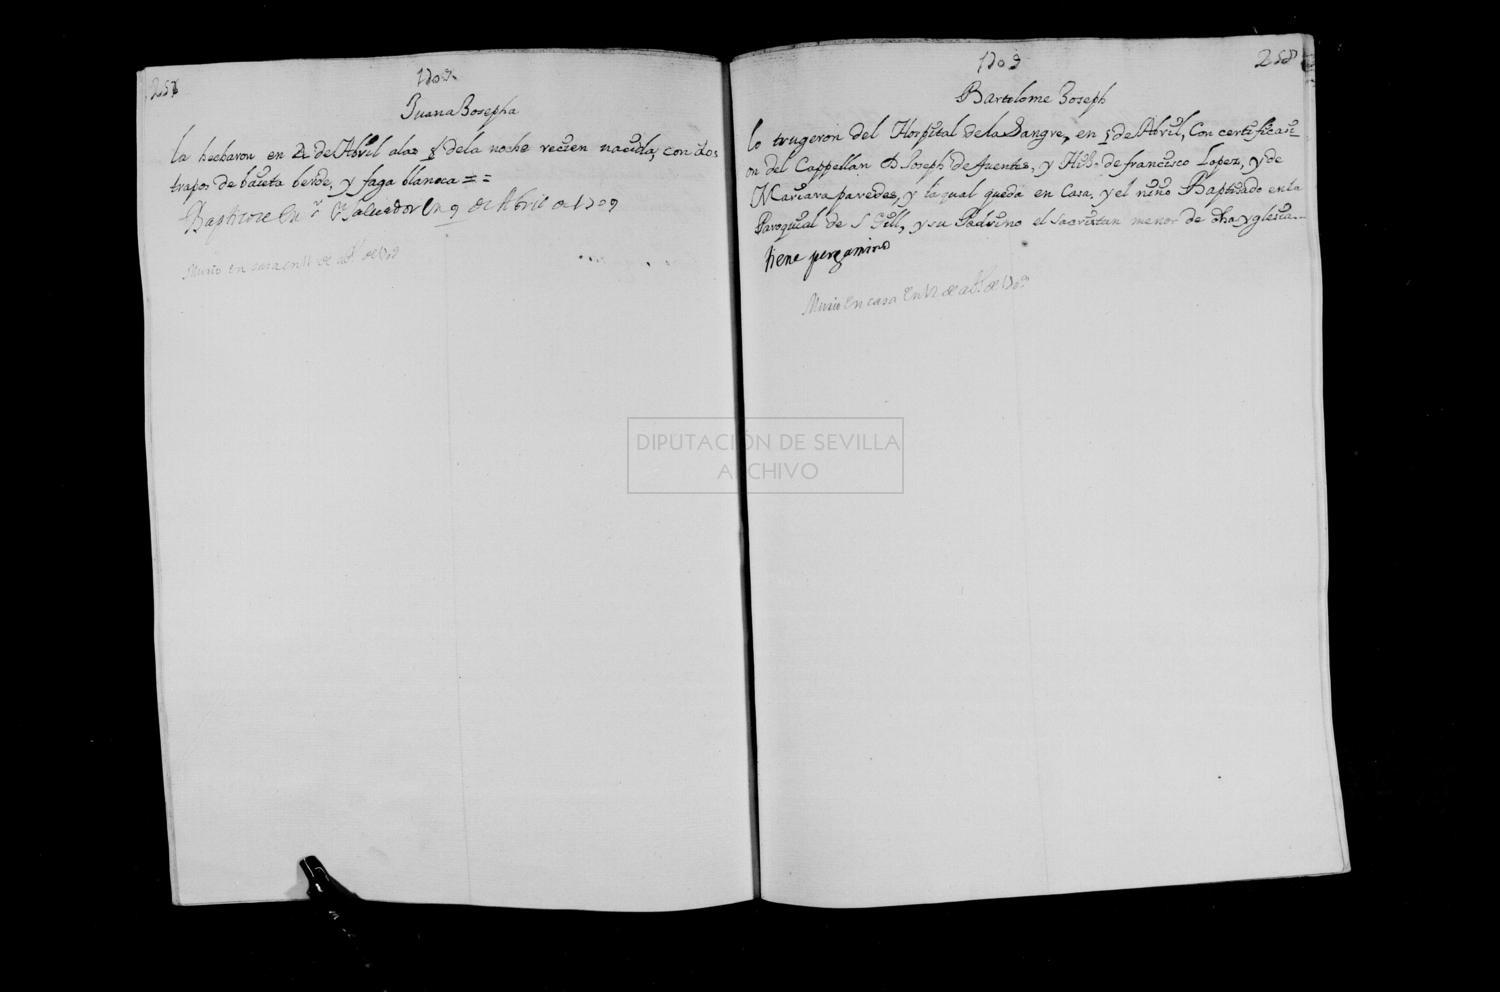 257
1709
Juana Josepha
la hecharon en 2 de Abril alas 8 dela noche recien nacida, con dos
trapos de baieta berde, y faga blanoca = =
Baptizose en Sn Salvador en 9 de Abril de 1709
Murio en casa en 11 de abl de 1709
1709
258
Bartolome Joseph
lo trugeron del Hospital dela Sangre, en 5 de Abril, Con certificasi
on del Cappellan D Joseph de fuentes, y Hijo de francisco Lopez, y de
Mariana paredes, y la qual queda en Casa, y el niño Baptisado en la
Paroquial de S Gill, y su Padrino el Sacristan menor de dha yglesia
tiene pergamino
Murio en casa en 12 de abl de 1709
DIPUTACIÓN DE SEVILLA
ARCHIVO